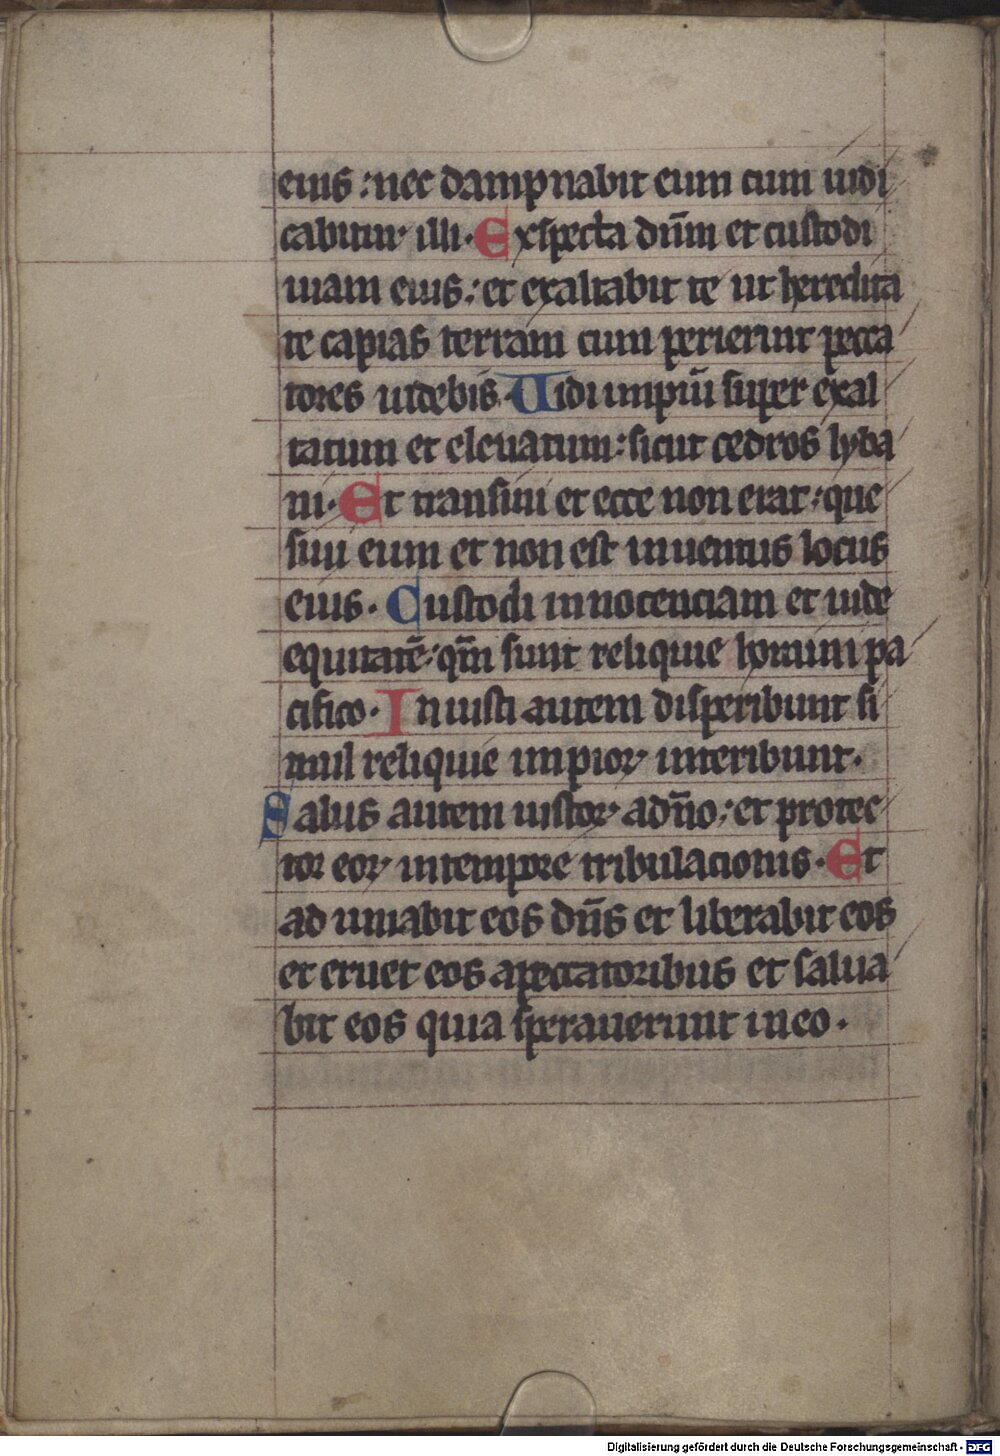 eius : nec dampnabit eum cum iudi
cabitur illi · Exspecta dn̄m et custodi
uiam eius : et exaltabit te ut heredita
te capias terram cum perierint pecca
tores uidebis · Uidi impiū super exal
tatum et eleuatum : sicut cedros lyba
ni · Et transiui et ecce non erat : que
siui eum et non est inuentus locus
eius · Custodi innocenciam et uide
equitatē : qm̄ sunt reliquie homini pa
cifico · Iniusti autem disperibunt si
mul reliquie impioꝝ interibunt ·
Salus autem iustoꝝ a dn̄o : et protec
tor eoꝝ in tempore tribulacionis · Et
adiuuabit eos dn̄s et liberabit eos
et eruet eos a peccatoribus et salua
bit eos quia sperauerunt in eo ·
Digitalisierung gefördert durch die Deutsche Forschungsgemeinschaft - DFG